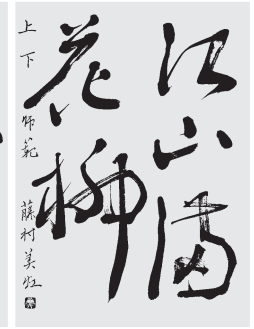 江山満
花柳
上下 師範 藤村美虹